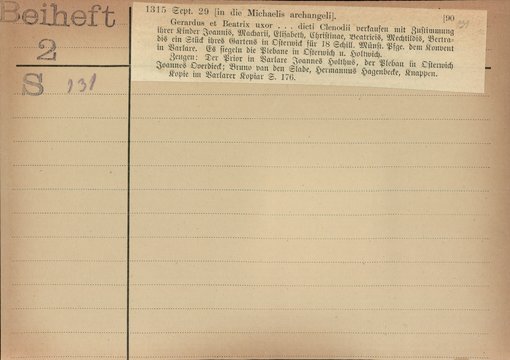 Beiheft
2
S 131
1315 Sept. 29 [in die Michaelis archangeli]. [90
Gerardus et Beatrix uxor . . . dicti Clenodii verkaufen mit Zustimmung
ihrer Kinder Joannis, Macharii, Elisabeth, Christinae, Beatricis, Mechtildis, Bertra-
dis ein Stück ihres Gartens in Osterwick für 18 Schill. Münst. Pfge. dem Konvent
in Varlare. Es siegeln die Plebane in Osterwick u. Holtwich.
Zeugen: Der Prior in Varlare Joannes Holthus, der Pleban in Osterwich
Joannes Overdieck; Bruno van den Slade, Hermannus Hagenbecke, Knappen.
Kopie im Varlarer Kopiar S. 176.